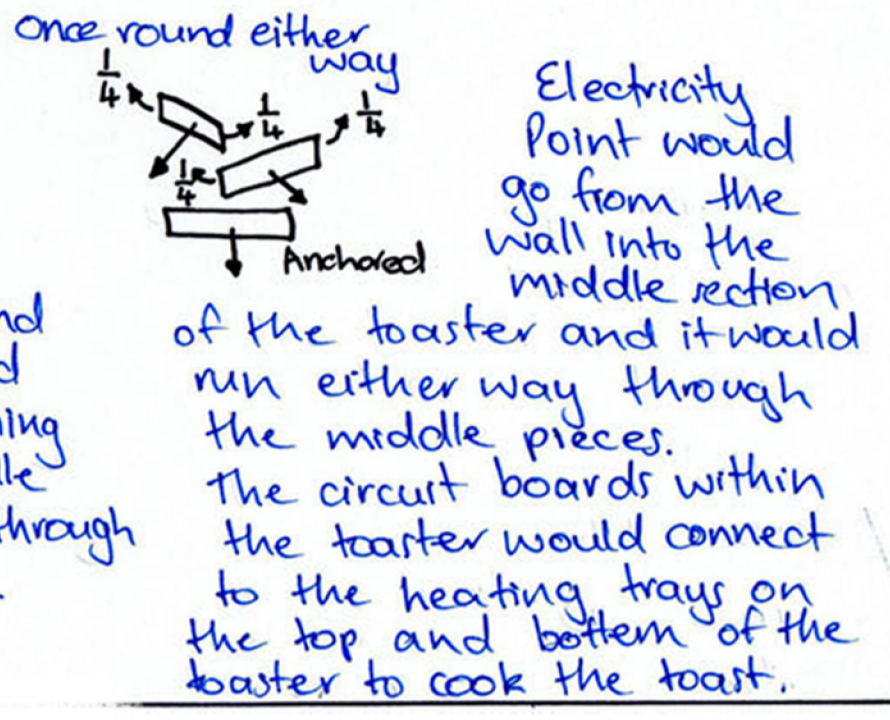 once round either
way
1/4
1/4
1/4
1/4
Anchored
Electricity
Point would
go from the
wall into the
middle section
of the toaster and it would
run either way through
the middle pieces.
The circuit boards within
the toaster would connect
to the heating trays on
the top and bottem of the
toaster to cook the toast.
through